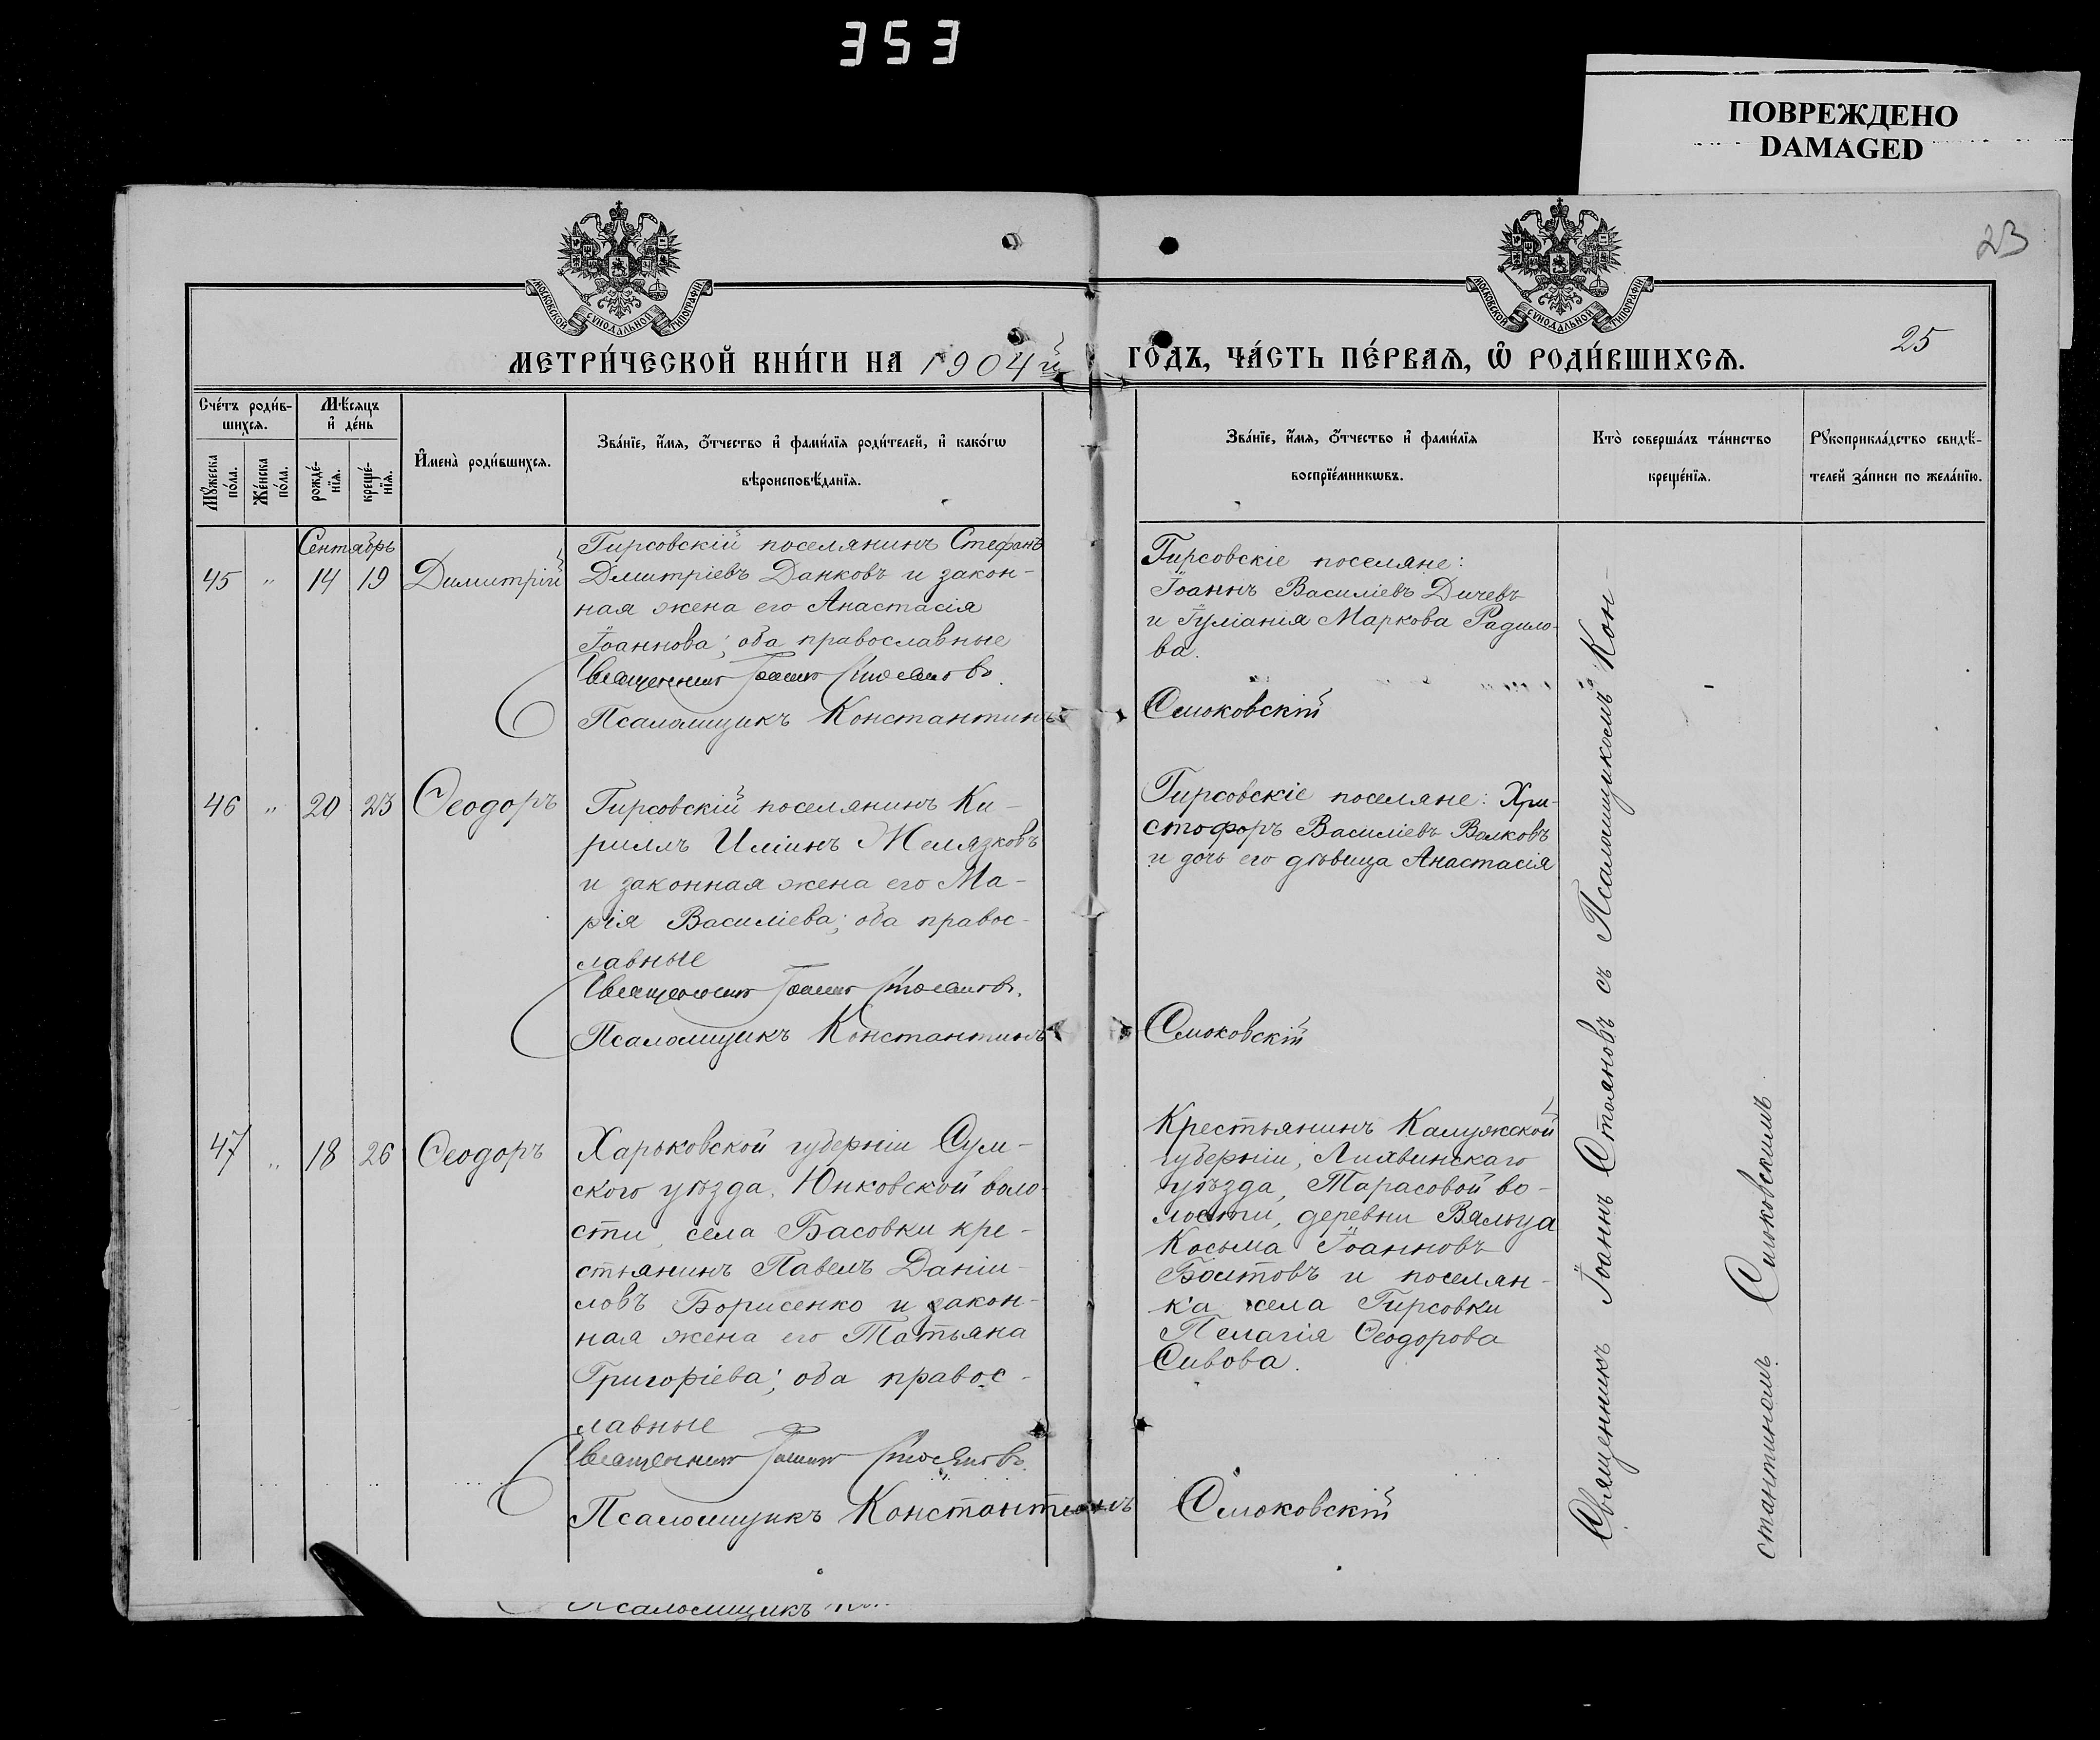 353
ПОВРЕЖДЕНО
DAMAGED
23
МОСКОВСКОЙ СѴНОДАЛЬНОЙ ТИПОГРАФІИ
МОСКОВСКОЙ СѴНОДАЛЬНОЙ ТИПОГРАФІИ
25
МЕТРИ́ЧЕСКОЙ КНИ́ГИ НА 1904й ГО́ДЪ, ЧА́СТЬ ПЕ́РВАѦ, Ѡ҆ РОДИ́ВШИХСѦ.
Сче́тъ роди́в-
шихсѧ.
Мꙋ́жеска по́ла.
Же́нска по́ла.
Мѣ́сѧцъ
и҆ де́нь
рожде́-
нїѧ.
креще́-
нїѧ.
И҆мена̀ роди́вшихсѧ.
Зва́нїе, и҆́мѧ, ѻ҆́тчество и҆ фами́лїѧ роди́телей, и҆ како́гѡ
вѣроисповѣ́данїѧ.
Зва́нїе, и҆́мѧ, ѻ҆́тчество и҆ фами́лїѧ
воспрїе́мникѡвъ.
Кто̀ соверша́лъ та́инство
креще́нїѧ.
Рꙋкоприкла́дство свидѣ́-
телей за́писи по жела́нїю.
Сентябрь
45 " 14 19 Димитрій
Гирсовскій поселянинъ Стефанъ
Дмитріевъ Данковъ и закон-
ная жена его Анастасія
Іоаннова; оба православные
Священникъ Іоаннъ Стояновъ.
Псаломщикъ Константинъ Смоковскій
Гирсовскіе поселяне:
Іоаннъ Василіевъ Дичевъ
и Іуліанія Маркова Радило-
ва.
46 " 20 23 Ѳеодоръ
Гирсовскій поселянинъ Ки-
риллъ Иліинъ Желязковъ
и законная жена его Ма-
рія Василіева; оба правос-
лавные
Священникъ Іоаннъ Стояновъ.
Псаломщикъ Константинъ Смоковскій
Гирсовскіе поселяне: Хри-
стофоръ Василіевъ Волковъ
и дочь его дѣвица Анастасія
47 " 18 26 Ѳеодоръ
Харьковской губерніи Сум-
ского уѣзда, Юнковской воло-
сти, села Басовки кре-
стьянинъ Павелъ Даніи-
ловъ Борисенко и закон-
ная жена его Татьяна
Григоріева; оба правос-
лавные
Священникъ Іоаннъ Стояновъ.
Псаломщикъ Константинъ Смоковскій
Крестьянинъ Калужской
губерніи, Лихвинскаго
уѣзда, Тарасовой во-
лости, деревни Вяльца
Косьма Іоанновъ
Болтовъ и поселян-
ка села Гирсовки
Пелагія Ѳеодорова
Сивова.
Священникъ Іоаннъ Стояновъ съ Псаломщикомъ Кон-
стантиномъ Смоковскимъ
Псаломщикъ